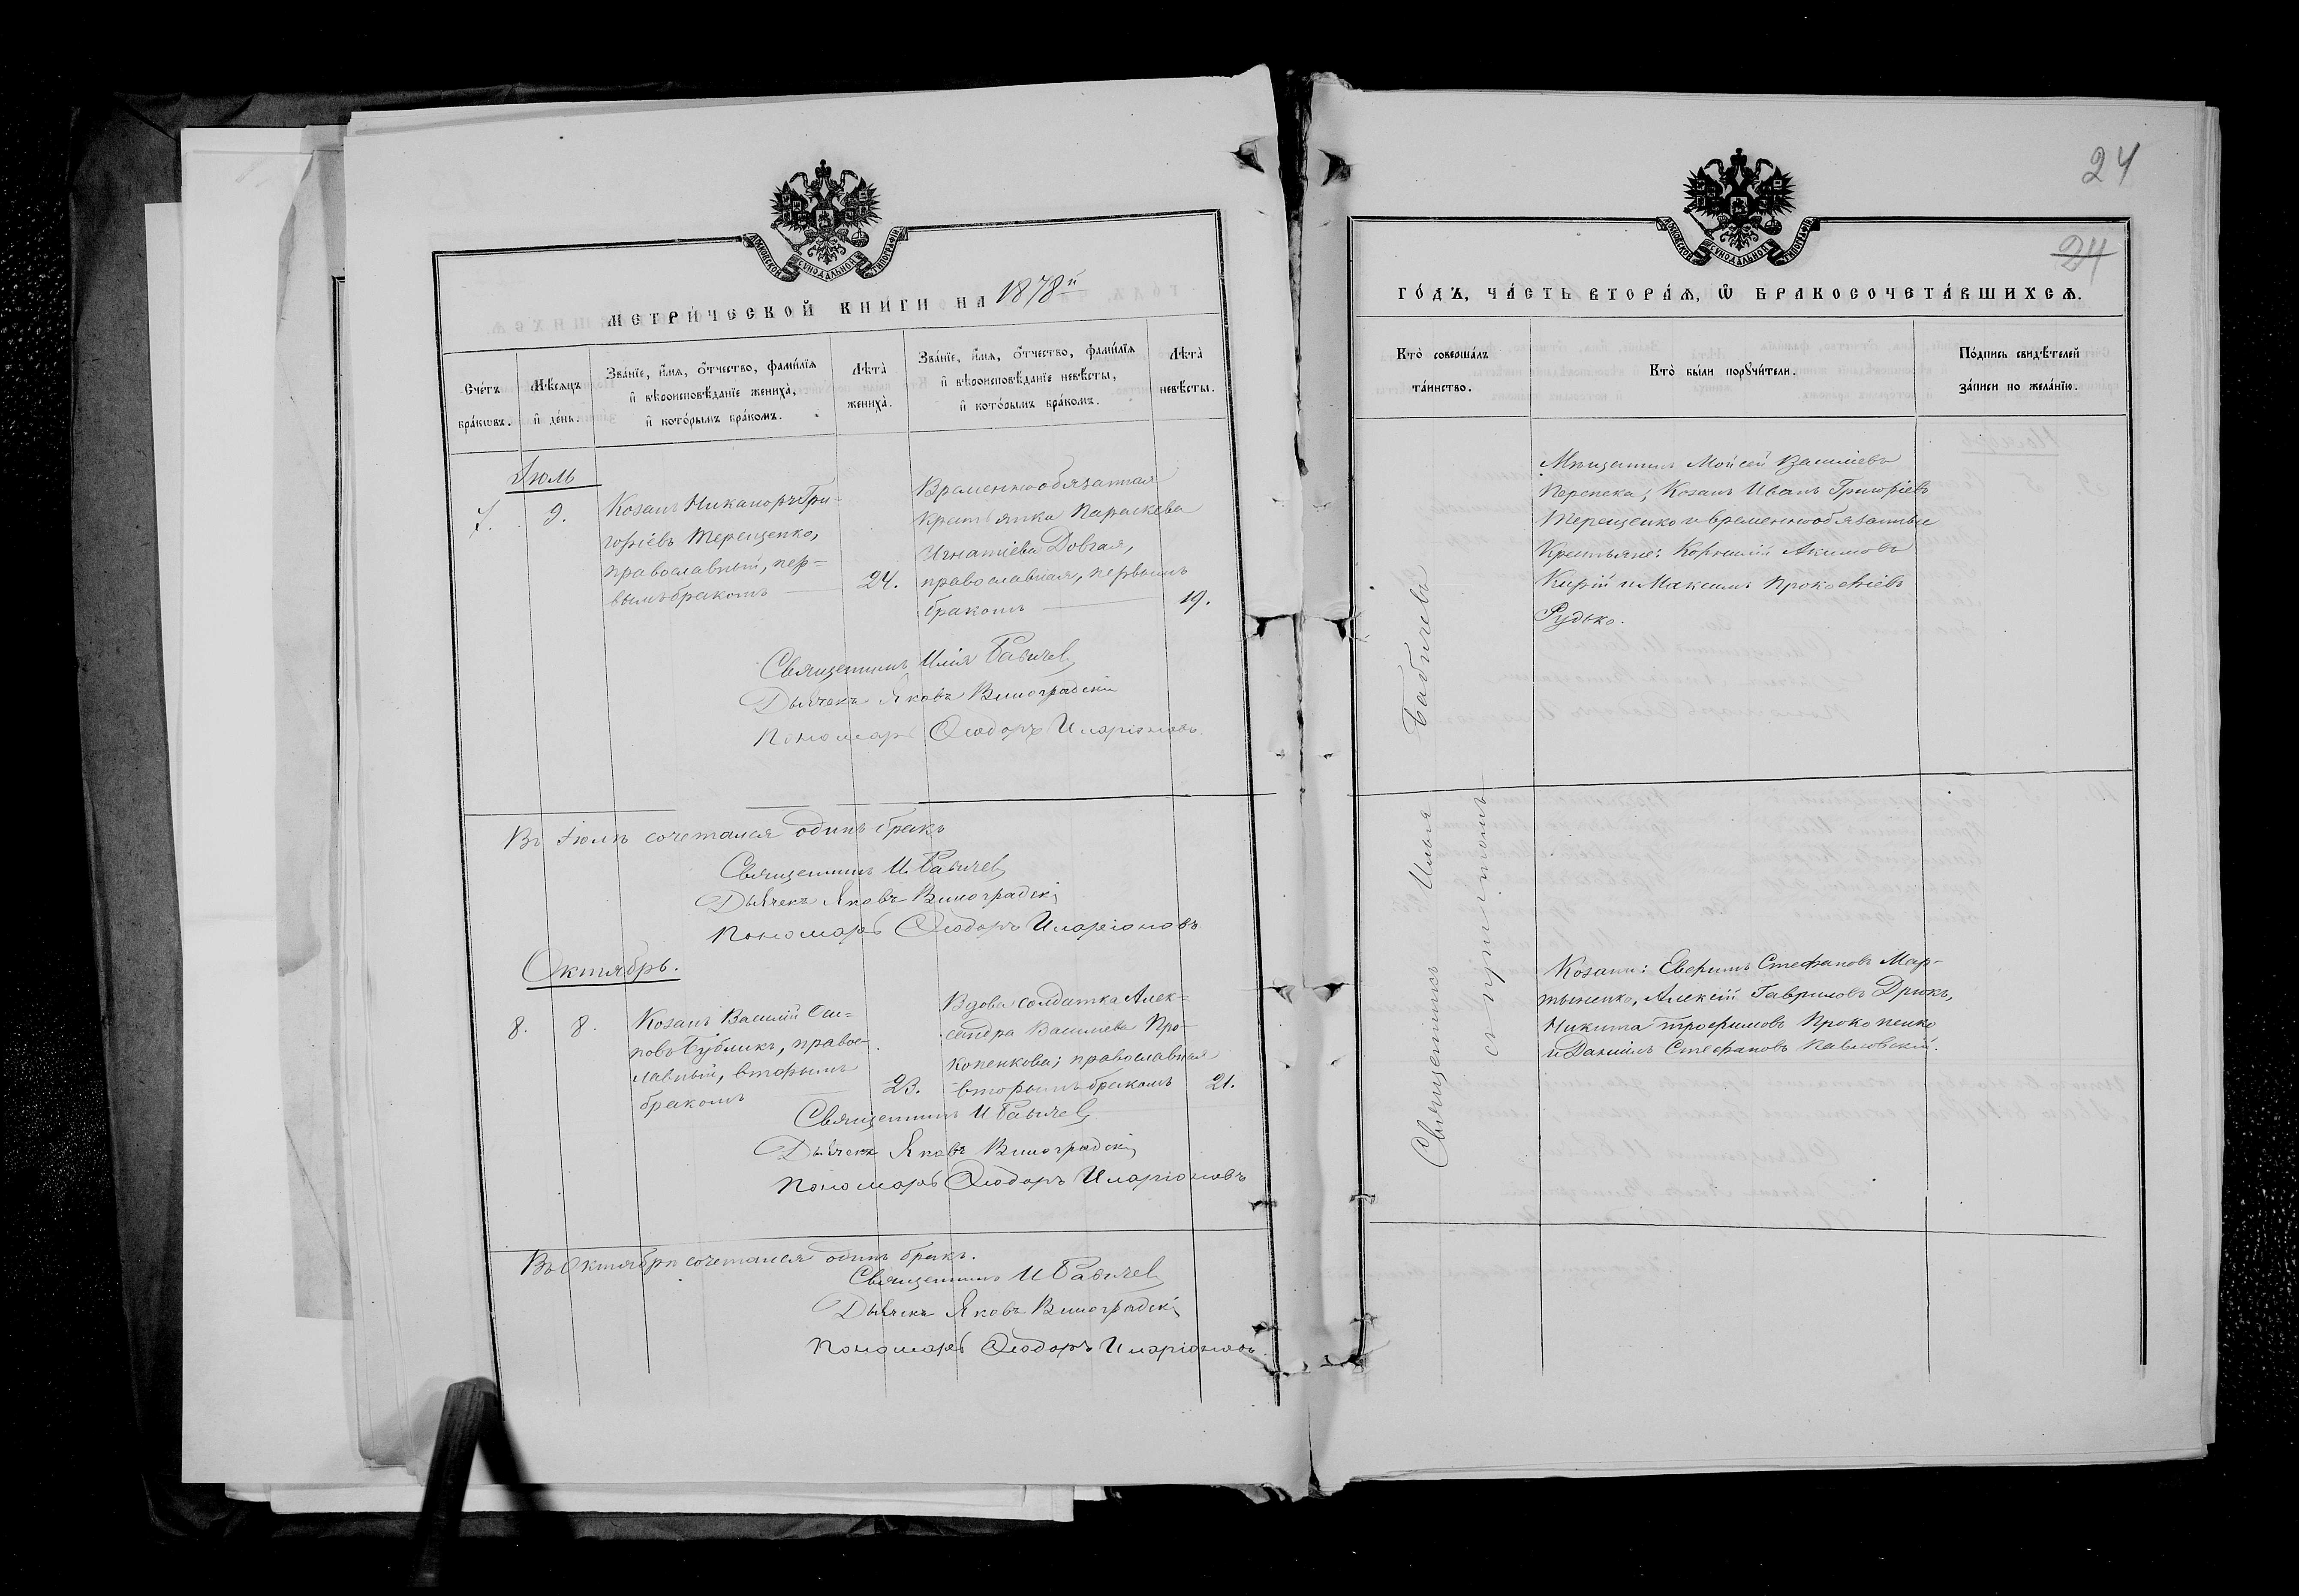 24
24
МОСКОВСКОЙ СУНОДАЛЬНОЙ ТИПОГРАФІИ
МЕТРИ́ЧЕСКОЙ КНИ́ГИ НА 1878й
Сче́тъ бра́кѡвъ.
Мѣ́сяцъ и҆ де́нь.
Зва́нїе, и҆́мѧ, ѻ҆́тчество, фами́лїѧ
и҆ вѣроисповѣ́данїе жениха̀,
и҆ кото́рымъ бра́комъ.
Лѣ́та̀ жениха̀.
Зва́нїе, и҆́мѧ, ѻ҆́тчество, фами́лїѧ
и҆ вѣроисповѣ́данїе невѣ́сты,
и҆ кото́рымъ бра́комъ.
Лѣ́та̀ невѣ́сты.
Іюль
7. 9.
Козакъ Никаноръ Гри-
горіевъ Терещенко,
православный, пер-
вымъ бракомъ
24.
Временнообязанная
крестьянка Параскева
Игнатіева Довгая,
православная, первымъ
бракомъ
19.
Священникъ Илія Бабичев
Дьячекъ Яковъ Виноградскій
Пономарь Ѳеодоръ Иларіоновъ.
Въ Іюлѣ сочетался одинъ бракъ
Священникъ И. Бабичев
Дьячекъ Яковъ Виноградскій
Пономарь Ѳеодоръ Иларіоновъ
Октябрь.
8. 8.
Козакъ Василій Оси-
повъ Бубликъ, правос-
лавный, вторымъ
бракомъ
23.
Вдова солдатка Алек-
сандра Василіева Про-
копенкова; православная
вторымъ бракомъ
21.
Священникъ И Бабичев
Дьячекъ Яковъ Виноградскій
Пономарь Ѳеодоръ Иларіоновъ
Въ Октябрѣ сочетался одинъ бракъ.
Священникъ И Бабичев
Дьячекъ Яковъ Виноградскій
Пономарь Ѳеодоръ Иларіоновъ.
МОСКОВСКОЙ СУНОДАЛЬНОЙ ТИПОГРАФІИ
ГО́ДЪ, ЧА́СТЬ ВТОРА́Ѧ, Ѽ БРАКОСОЧЕТА́ВШИХСѦ.
Кто̀ соверша́лъ
та́инство.
Кто̀ бы́ли порꙋчи́тели.
По́дпись свидѣ́телей
за́писи по жела́нїю.
Священникъ Илья Бабичевъ
съ причитомъ
Мѣщанинъ Мойсей Василіевъ
Перепека; Козакъ Иванъ Григоріевъ
Терещенко и временнообязанные
Крестьяне: Корнилій Акимовъ
Кирій и Максимъ Прокофіевъ
Рудько.
Козаки: Стефановъ Мар-
тыненко, Алексій Гавриловъ Дрюкъ,
Никита Трофимовъ Прокопенко
и Даніилъ Стефановъ Павловскій.